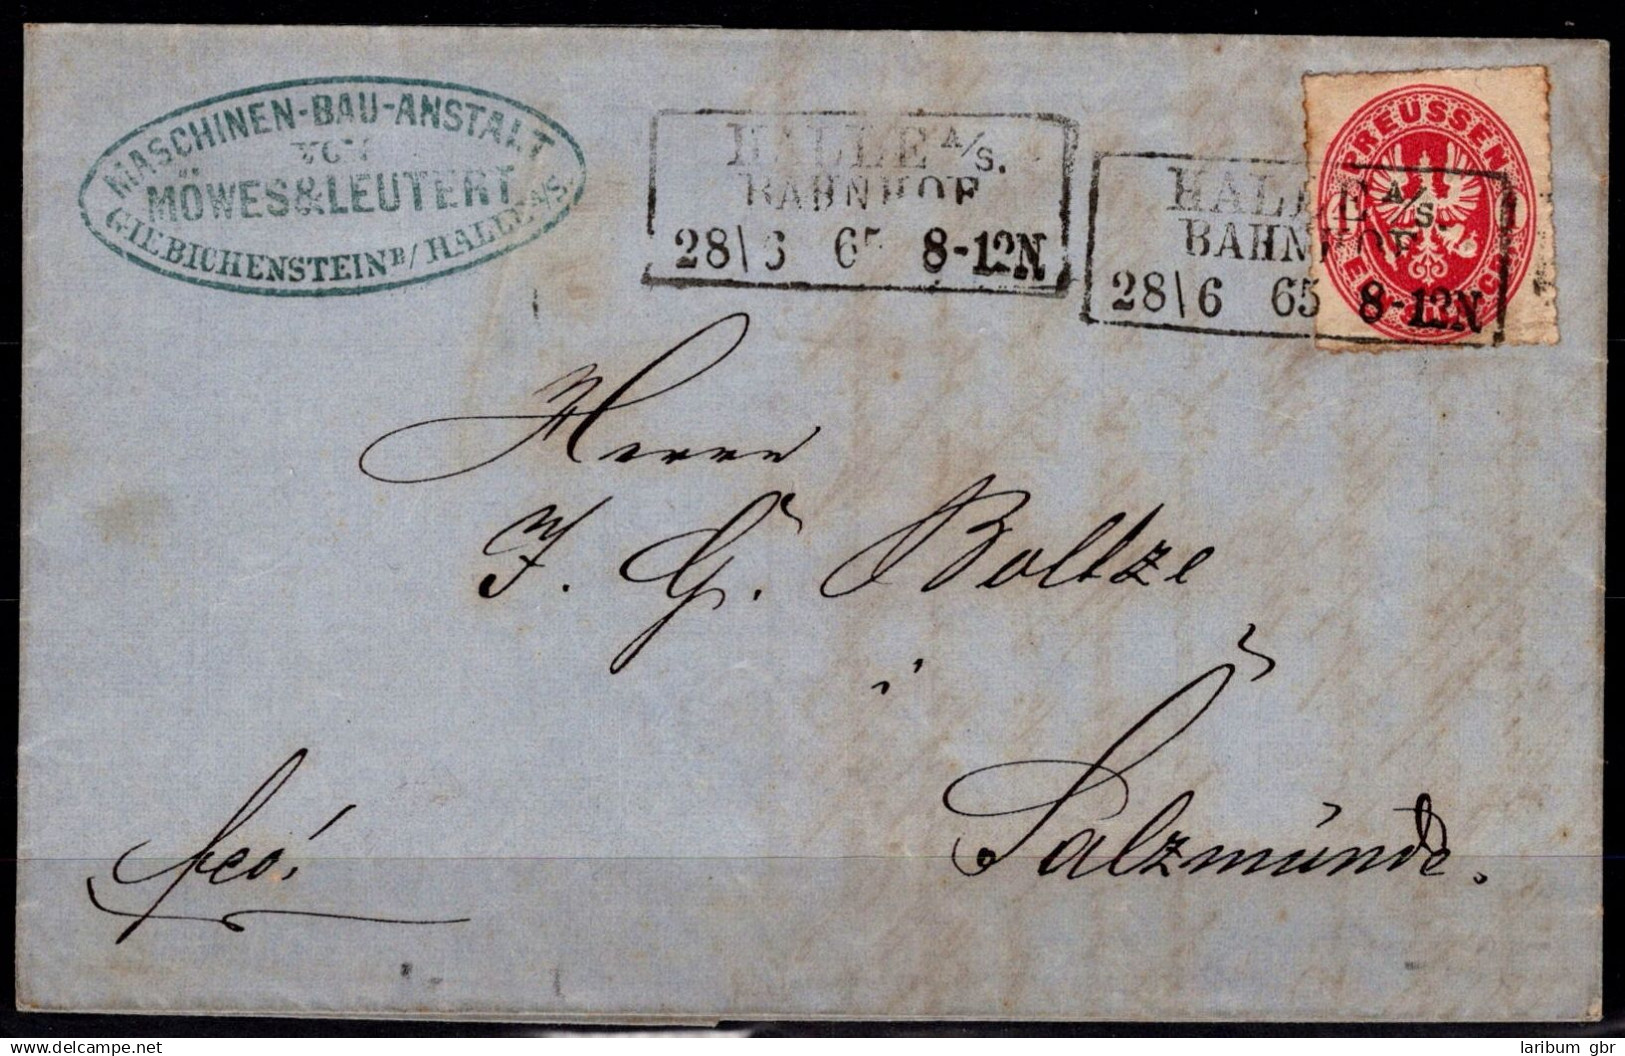 MASCHINEN-BAU-ANSTALT
VON
MÖWES & LEUTERT
GIEBICHENSTEIN B/ HALLE A/S.
HALLE A/S.
BAHNHOF
28|6 65 8-12N
HALLE A/S.
BAHNHOF
28|6 65 8-12N
PREUSSEN
1
Herrn
J. G. Boltze
i
Salzmünde.
fco!
delcampe.net
laribum gbr